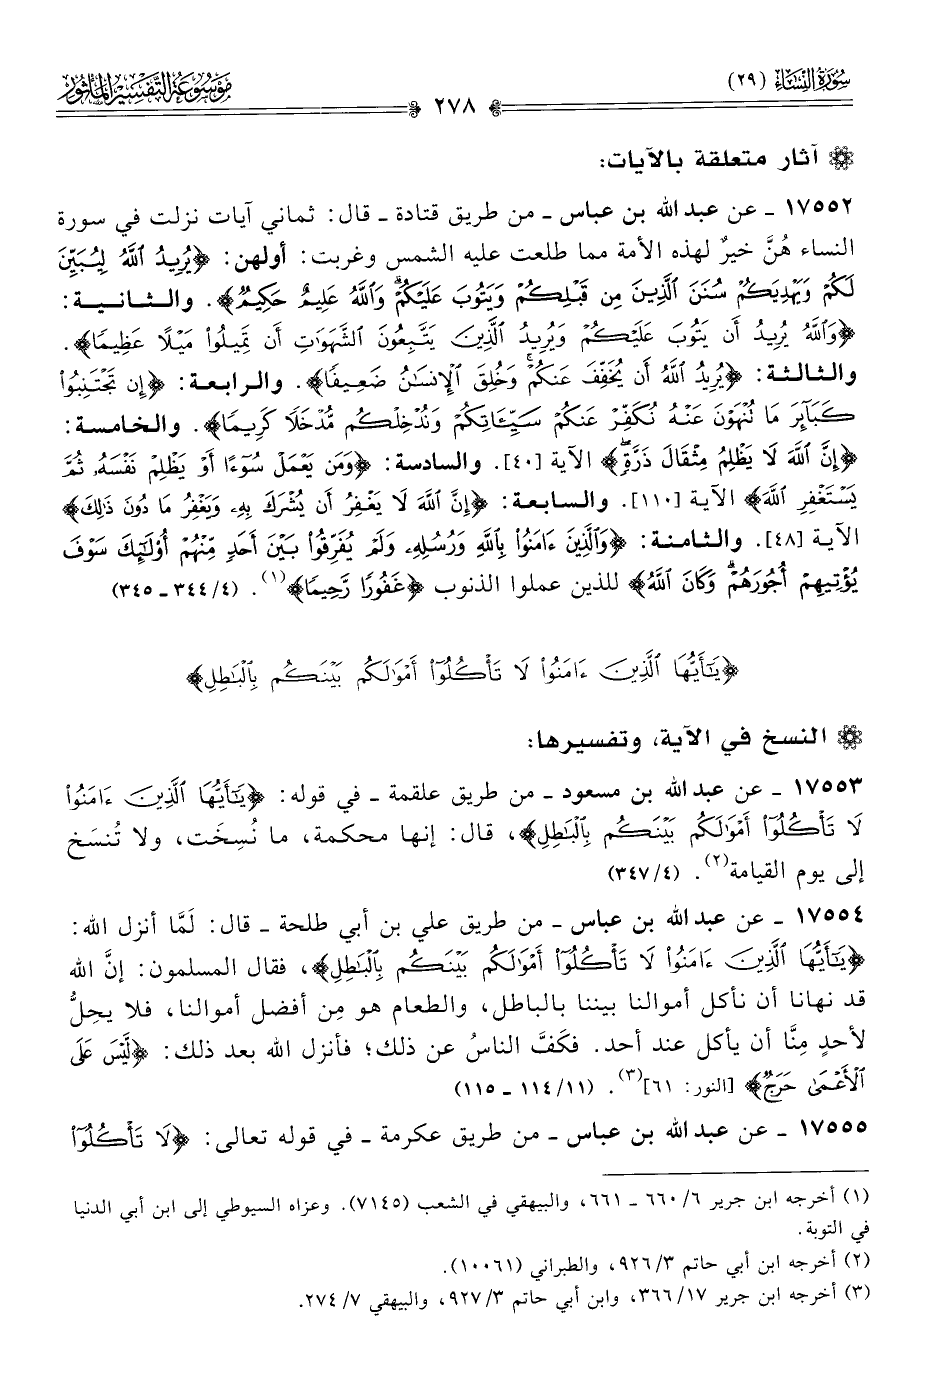 سُورَةُ النِّسَاءِ (٢٩)
٢٧٨
مَوْسُوعَةُ التَّفْسِيرِ المَأْثُورِ
آثار متعلقة بالآيات:
١٧٥٥٢ ـ عن عبد الله بن عباس ـ من طريق قتادة ـ قال: ثماني آيات نزلت في سورة
النساء هُنَّ خيرٌ لهذه الأمة مما طلعت عليه الشمس وغربت: أولهن: ﴿يُرِيدُ ٱللَّهُ لِيُبَيِّنَ
لَكُمْ وَيَهْدِيَكُمْ سُنَنَ ٱلَّذِينَ مِن قَبْلِكُمْ وَيَتُوبَ عَلَيْكُمْۗ وَٱللَّهُ عَلِيمٌ حَكِيمٌ﴾. والـثـانـيـة:
﴿وَٱللَّهُ يُرِيدُ أَن يَتُوبَ عَلَيْكُمْ وَيُرِيدُ ٱلَّذِينَ يَتَّبِعُونَ ٱلشَّهَوَٰتِ أَن تَمِيلُوا۟ مَيْلًا عَظِيمًا﴾.
والثالثة: ﴿يُرِيدُ ٱللَّهُ أَن يُخَفِّفَ عَنكُمْۚ وَخُلِقَ ٱلْإِنسَٰنُ ضَعِيفًا﴾. والرابعة: ﴿إِن تَجْتَنِبُوا۟
كَبَآئِرَ مَا تُنْهَوْنَ عَنْهُ نُكَفِّرْ عَنكُمْ سَيِّـَٔاتِكُمْ وَنُدْخِلْكُم مُّدْخَلًا كَرِيمًا﴾. والخامسة:
﴿إِنَّ ٱللَّهَ لَا يَظْلِمُ مِثْقَالَ ذَرَّةٍۖ﴾ الآية [٤٠]. والسادسة: ﴿وَمَن يَعْمَلْ سُوٓءًا أَوْ يَظْلِمْ نَفْسَهُۥ ثُمَّ
يَسْتَغْفِرِ ٱللَّهَ﴾ الآية [١١٠]. والسابعة: ﴿إِنَّ ٱللَّهَ لَا يَغْفِرُ أَن يُشْرَكَ بِهِۦ وَيَغْفِرُ مَا دُونَ ذَٰلِكَ﴾
الآية [٤٨]. والثامنة: ﴿وَٱلَّذِينَ ءَامَنُوا۟ بِٱللَّهِ وَرُسُلِهِۦ وَلَمْ يُفَرِّقُوا۟ بَيْنَ أَحَدٍ مِّنْهُمْ أُو۟لَٰٓئِكَ سَوْفَ
يُؤْتِيهِمْ أُجُورَهُمْۗ وَكَانَ ٱللَّهُ﴾ للذين عملوا الذنوب ﴿غَفُورًا رَّحِيمًا﴾(١). (٣٤٤/٤ ـ ٣٤٥)
﴿يَٰٓأَيُّهَا ٱلَّذِينَ ءَامَنُوا۟ لَا تَأْكُلُوٓا۟ أَمْوَٰلَكُم بَيْنَكُم بِٱلْبَٰطِلِ﴾
النسخ في الآية، وتفسيرها:
١٧٥٥٣ ـ عن عبد الله بن مسعود ـ من طريق علقمة ـ في قوله: ﴿يَٰٓأَيُّهَا ٱلَّذِينَ ءَامَنُوا۟
لَا تَأْكُلُوٓا۟ أَمْوَٰلَكُم بَيْنَكُم بِٱلْبَٰطِلِ﴾، قال: إنها محكمة، ما نُسِخَت، ولا تُنسَخ
إلى يوم القيامة(٢). (٣٤٧/٤)
١٧٥٥٤ ـ عن عبد الله بن عباس ـ من طريق علي بن أبي طلحة ـ قال: لَمَّا أنزل الله:
﴿يَٰٓأَيُّهَا ٱلَّذِينَ ءَامَنُوا۟ لَا تَأْكُلُوٓا۟ أَمْوَٰلَكُم بَيْنَكُم بِٱلْبَٰطِلِ﴾، فقال المسلمون: إنَّ الله
قد نهانا أن نأكل أموالنا بيننا بالباطل، والطعام هو مِن أفضل أموالنا، فلا يحِلُّ
لأحدٍ مِنَّا أن يأكل عند أحد. فكَفَّ الناسُ عن ذلك؛ فأنزل الله بعد ذلك: ﴿لَّيْسَ عَلَى
ٱلْأَعْمَىٰ حَرَجٌ﴾ [النور: ٦١](٣). (١١٤/١١ ـ ١١٥)
١٧٥٥٥ ـ عن عبد الله بن عباس ـ من طريق عكرمة ـ في قوله تعالى: ﴿لَا تَأْكُلُوٓا۟
(١) أخرجه ابن جرير ٦/ ٦٦٠ ـ ٦٦١، والبيهقي في الشعب (٧١٤٥). وعزاه السيوطي إلى ابن أبي الدنيا
في التوبة.
(٢) أخرجه ابن أبي حاتم ٩٢٦/٣، والطبراني (١٠٠٦١).
(٣) أخرجه ابن جرير ١٧/ ٣٦٦، وابن أبي حاتم ٩٢٧/٣، والبيهقي ٧/ ٢٧٤.